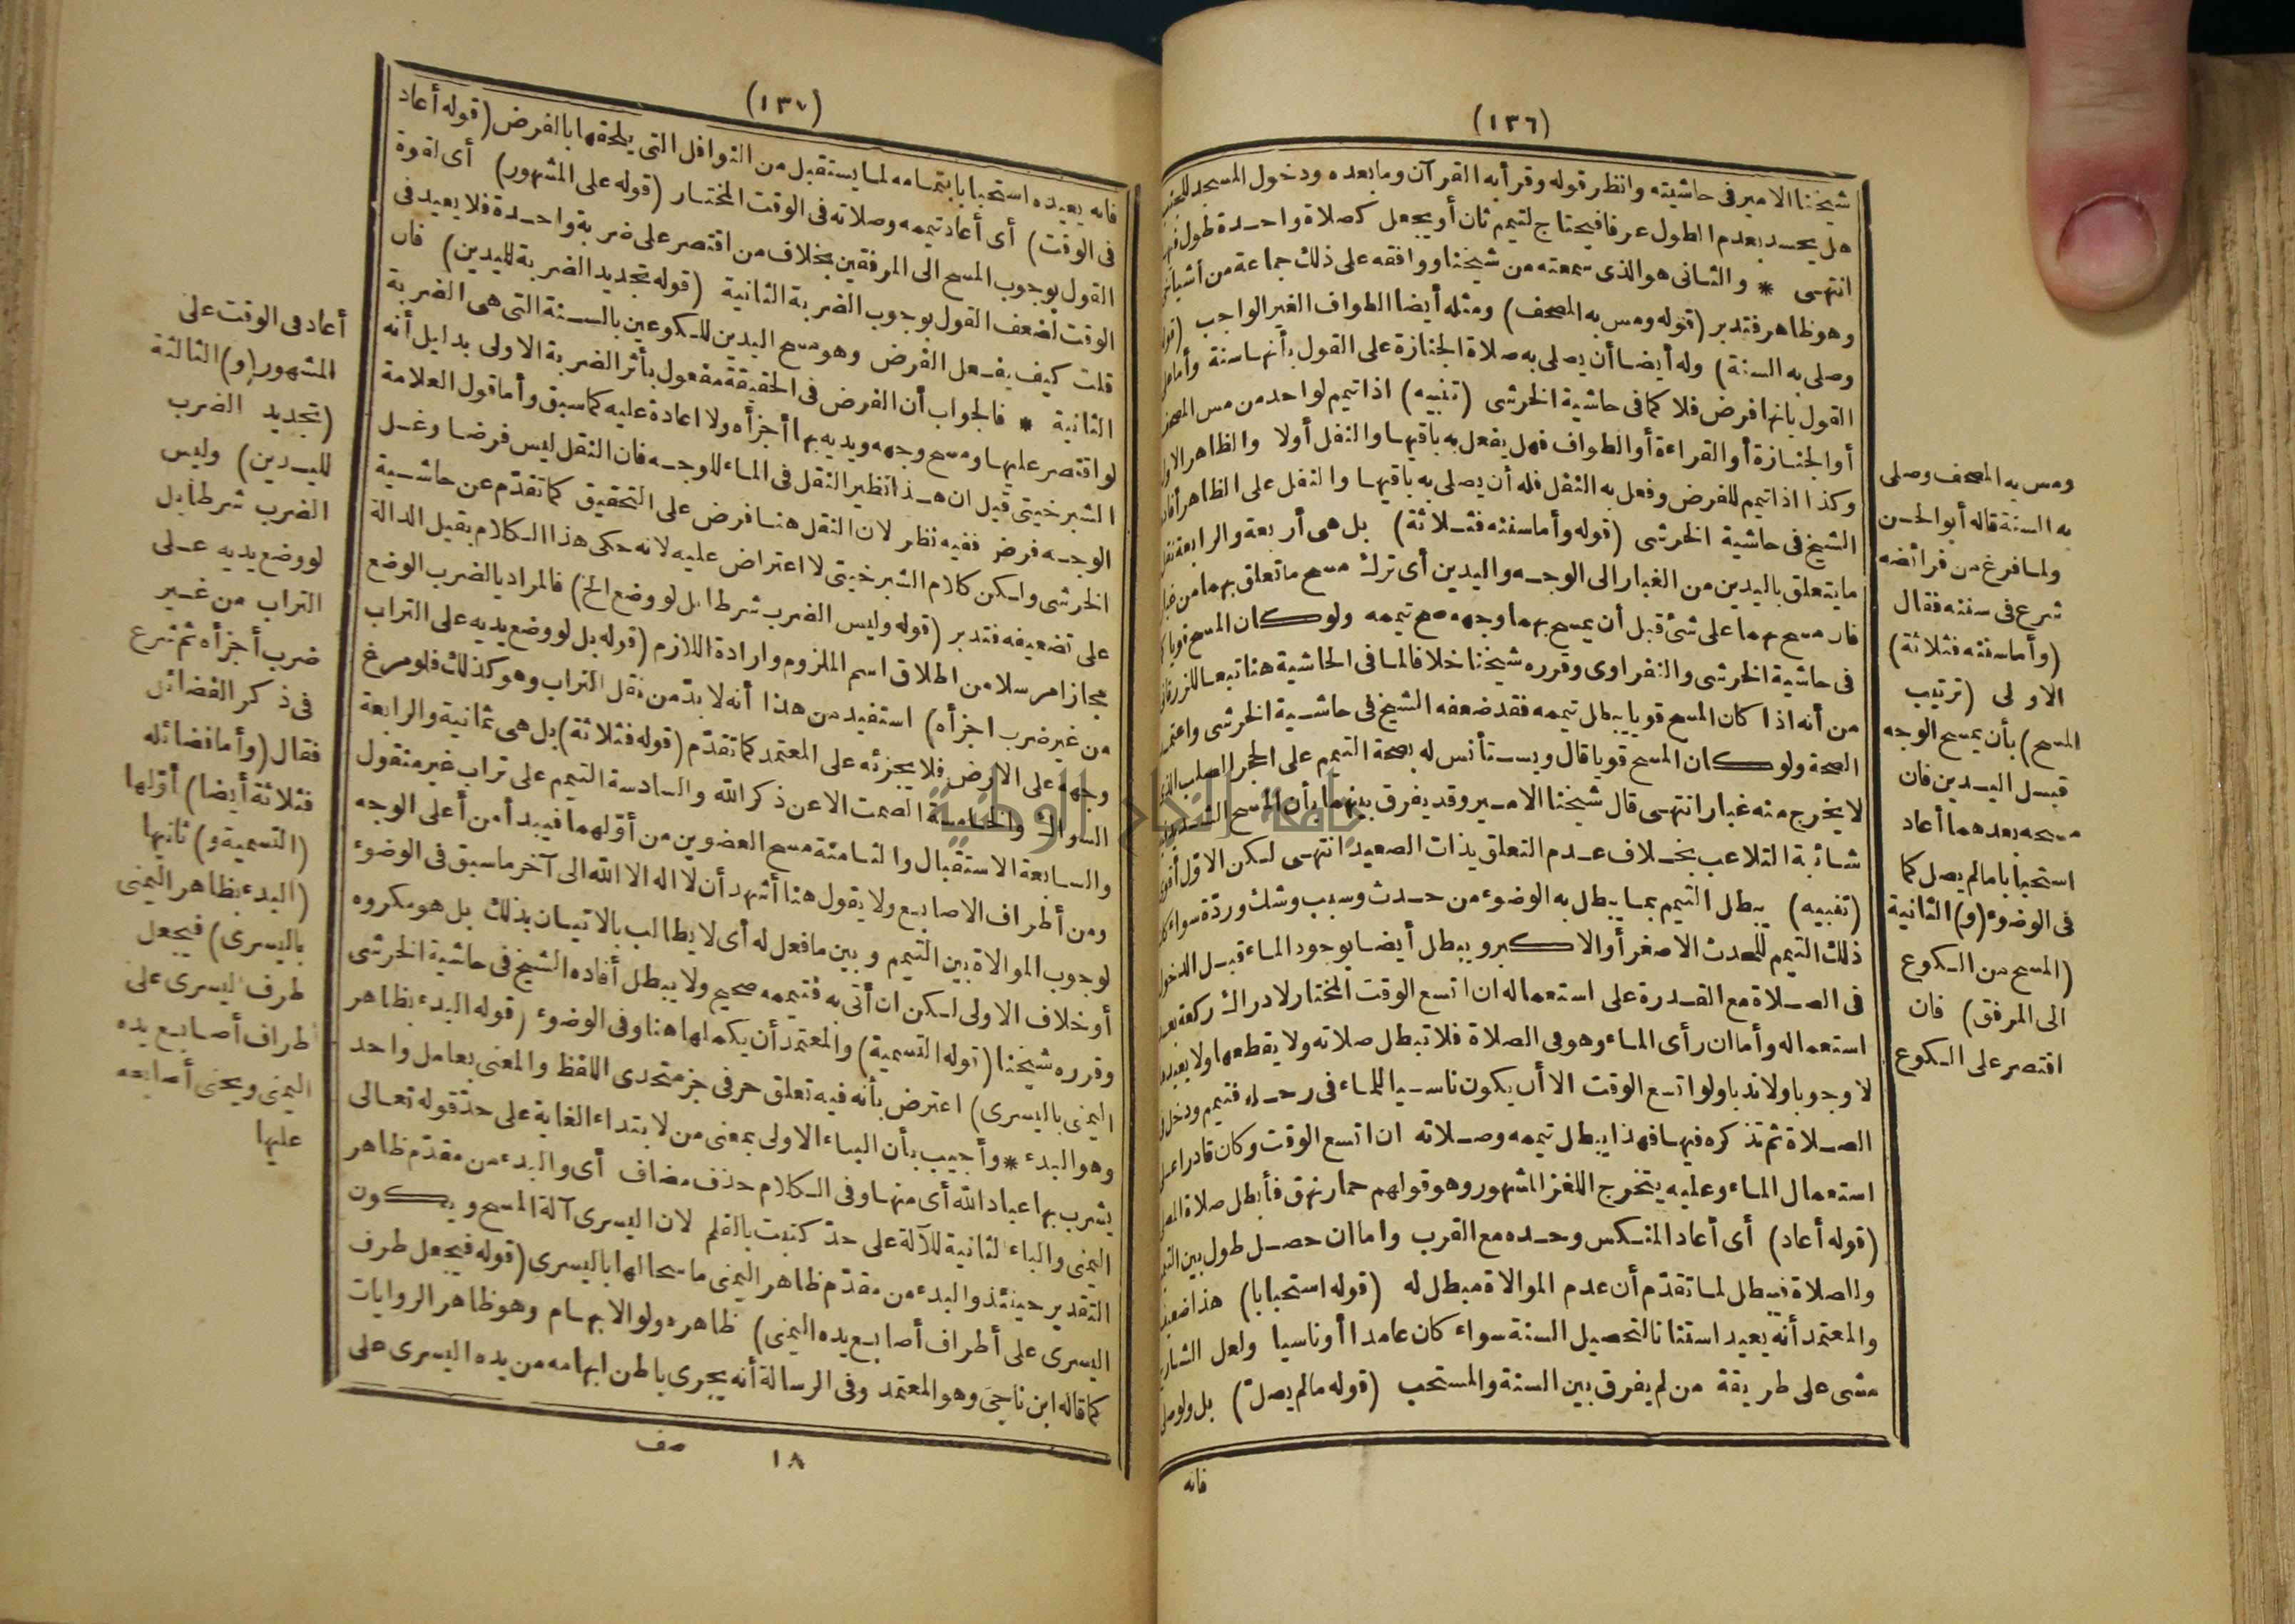 (١٣٦)
شيخنا الامير فى حاشيته وانظر قوله وقرأ به القرآن وما بعده ودخول المسجد للجنب
هل يحد بعدم الطول عرفا فيحتاج لتيمم ثان أو يجعل كصلاة واحدة طول فيها
انتهى * والثانى هو الذى سمعته من شيخنا ووافقه على ذلك جماعة من أشياخى
وهو ظاهر فتدبر (قوله ومس به المصحف) ومثله أيضا الطواف الغير الواجب (قوله
وصلى به السنة) وله أيضا أن يصلى به صلاة الجنازة على القول بأنها سنة وأما على
القول بانها فرض فلا كما فى حاشية الخرشى (تنبيه) اذا تيمم لواحد من مس المصحف
أو الجنازة أو القراءة أو الطواف فهل يفعل به باقيها والنفل أولا والظاهر الاول
وكذا اذا تيمم للفرض وفعل به النفل فله أن يصلى به باقيها والنفل على الظاهر أفاده
الشيخ فى حاشية الخرشى (قوله وأما سننه فثلاثة) بل هى أربعة والرابعة نقل
ما يتعلق باليدين من الغبار الى الوجه واليدين أى ترك مسح ما تعلق بهما من غبار
فان مسح بهما على شئ قبل أن يمسح بهما وجهه صح تيممه ولو كان المسح قويا كما
فى حاشية الخرشى والنفراوى وقرره شيخنا خلافا لما فى الحاشية هنا تبعا للزرقانى
من أنه اذا كان المسح قويا يبطل تيممه فقد ضعفه الشيخ فى حاشية الخرشى واعتمد
الصحة ولو كان المسح قويا قال ويستأنس له بصحة التيمم على الحجر الصلب الذى
لا يخرج منه غبار انتهى قال شيخنا الامير وقد يفرق بينهما بأن المسح الشديد
شائبة التلاعب بخلاف عدم التعلق بذات الصعيد انتهى لكن الاول أقوى
(تنبيه) يبطل التيمم بما يبطل به الوضوء من حدث وسبب وشك وردة سواء كان
ذلك التيمم للحدث الاصغر أو الاكبر ويبطل أيضا بوجود الماء قبل الدخول
فى الصلاة مع القدرة على استعماله ان اتسع الوقت المختار لادراك ركعة بعد
استعماله وأما ان رأى الماء وهو فى الصلاة فلا تبطل صلاته ولا يقطعها ولا يعيدها
لا وجوبا ولا ندبا ولو اتسع الوقت الا أن يكون ناسيا للماء فى رحله فتيمم ودخل فى
الصلاة ثم تذكره فيها فهذا يبطل تيممه وصلاته ان اتسع الوقت وكان قادرا على
استعمال الماء وعليه يتخرج اللغز المشهور وهو قولهم حمار نهق فأبطل صلاة المصلى
(قوله أعاد) أى أعاد المنكس وحده مع القرب واما ان حصل طول بين التيمم
والصلاة فيبطل لما تقدّم أن عدم الموالاة مبطل له (قوله استحبابا) هذا ضعيف
والمعتمد أنه يعيد استنانا لتحصيل السنة سواء كان عامدا أو ناسيا ولعل الشارح
مشى على طريقة من لم يفرق بين السنة والمستحب (قوله ما لم يصلّ) بل ولو صلى
فانه
ومس به المصحف وصلى
به السنة قاله أبو الحسن
ولما فرغ من فرائضه
شرع فى سننه فقال
(وأما سننه فثلاثة)
الاولى (ترتيب
المسح) بأن يمسح الوجه
قبل اليدين فان
مسحه بعدهما أعاد
استحبابا ما لم يصل كما
فى الوضوء (و) الثانية
(المسح من الكوع
الى المرفق) فان
اقتصر على الكوع
(١٣٧)
فانه يعيده استحبابا بتمامه لما يستقبل من النوافل التى يلحقها بالفرض (قوله أعاد
فى الوقت) أى أعاد تيممه وصلاته فى الوقت المختار (قوله على المشهور) أى لقوة
القول بوجوب المسح الى المرفقين بخلاف من اقتصر على ضربة واحدة فلا يعيد فى
الوقت لضعف القول بوجوب الضربة الثانية (قوله تجديد الضربة لليدين) فان
قلت كيف يفعل الفرض وهو مسح اليدين للكوعين بالسنة التى هى الضربة
الثانية * فالجواب أن الفرض فى الحقيقة مفعول بأثر الضربة الاولى بدليل أنه
لو اقتصر عليها ومسح وجهه ويديه بها أجزأه ولا اعادة عليه كما سبق وأما قول العلامة
الشبرخيتى قيل ان هذا نظير النقل فى الماء للوجه فان النقل ليس فرضا وغسل
الوجه فرض ففيه نظر لان النقل هنا فرض على التحقيق كما تقدّم عن حاشية
الخرشى ولكن كلام الشبرخيتى لا اعتراض عليه لانه حكى هذا الكلام بقيل الدالة
على تضعيفه فتدبر (قوله وليس الضرب شرطا بل لو وضع الخ) فالمراد بالضرب الوضع
مجازا مرسلا من اطلاق اسم الملزوم وارادة اللازم (قوله بل لو وضع يديه على التراب
من غير ضرب اجزأه) استفيد من هذا أنه لا بدّ من نقل التراب وهو كذلك فلو مرغ
وجهه على الارض فلا يجزئه على المعتمد كما تقدّم (قوله فثلاثة) بل هى ثمانية والرابعة
السواك والخامسة الصمت الا عن ذكر الله والسادسة التيمم على تراب غير منقول
والسابعة الاستقبال والثامنة مسح العضوين من أوّلهما فيبدأ من أعلى الوجه
ومن أطراف الاصابع ولا يقول هنا أشهد أن لا اله الا الله الى آخر ما سبق فى الوضوء
لوجوب الموالاة بين التيمم وبين ما فعل له أى لا يطالب بالاتيان بذلك بل هو مكروه
أو خلاف الاولى لكن ان أتى به فتيممه صحيح ولا يبطل أفاده الشيخ فى حاشية الخرشى
وقرره شيخنا (قوله التسمية) والمعتمد أن يكملها هنا وفى الوضوء (قوله البدء بظاهر
اليمنى باليسرى) اعترض بأنه فيه تعلق حرفى جر متحدى اللفظ والمعنى بعامل واحد
وهو البدء * وأجيب بأن الباء الاولى بمعنى من لابتداء الغاية على حدّ قوله تعالى
يشرب بها عباد الله أى منها وفى الكلام حذف مضاف أى والبدء من مقدّم ظاهر
اليمنى والباء الثانية للآلة على حدّ كتبت بالقلم لان اليسرى آلة المسح ويكون
التقدير حينئذ والبدء من مقدّم ظاهر اليمنى ماسحا لها باليسرى (قوله فيجعل طرف
اليسرى على أطراف أصابع يده اليمنى) ظاهره ولو الابهام وهو ظاهر الروايات
كما قاله ابن ناجى وهو المعتمد وفى الرسالة أنه يجرى باطن ابهامه من يده اليسرى على
١٨ صف
أعاد فى الوقت على
المشهور (و) الثالثة
(تجديد الضرب
لليدين) وليس
الضرب شرطا بل
لو وضع يديه على
التراب من غير
ضرب أجزأه ثم شرع
فى ذكر الفضائل
فقال (وأما فضائله
فثلاثة أيضا) أوّلها
(التسمية و) ثانيها
(البدء بظاهر اليمنى
باليسرى) فيجعل
طرف اليسرى على
أطراف أصابع يده
اليمنى ويحنى أصابعه
عليها
جامعة النجاح الوطنية